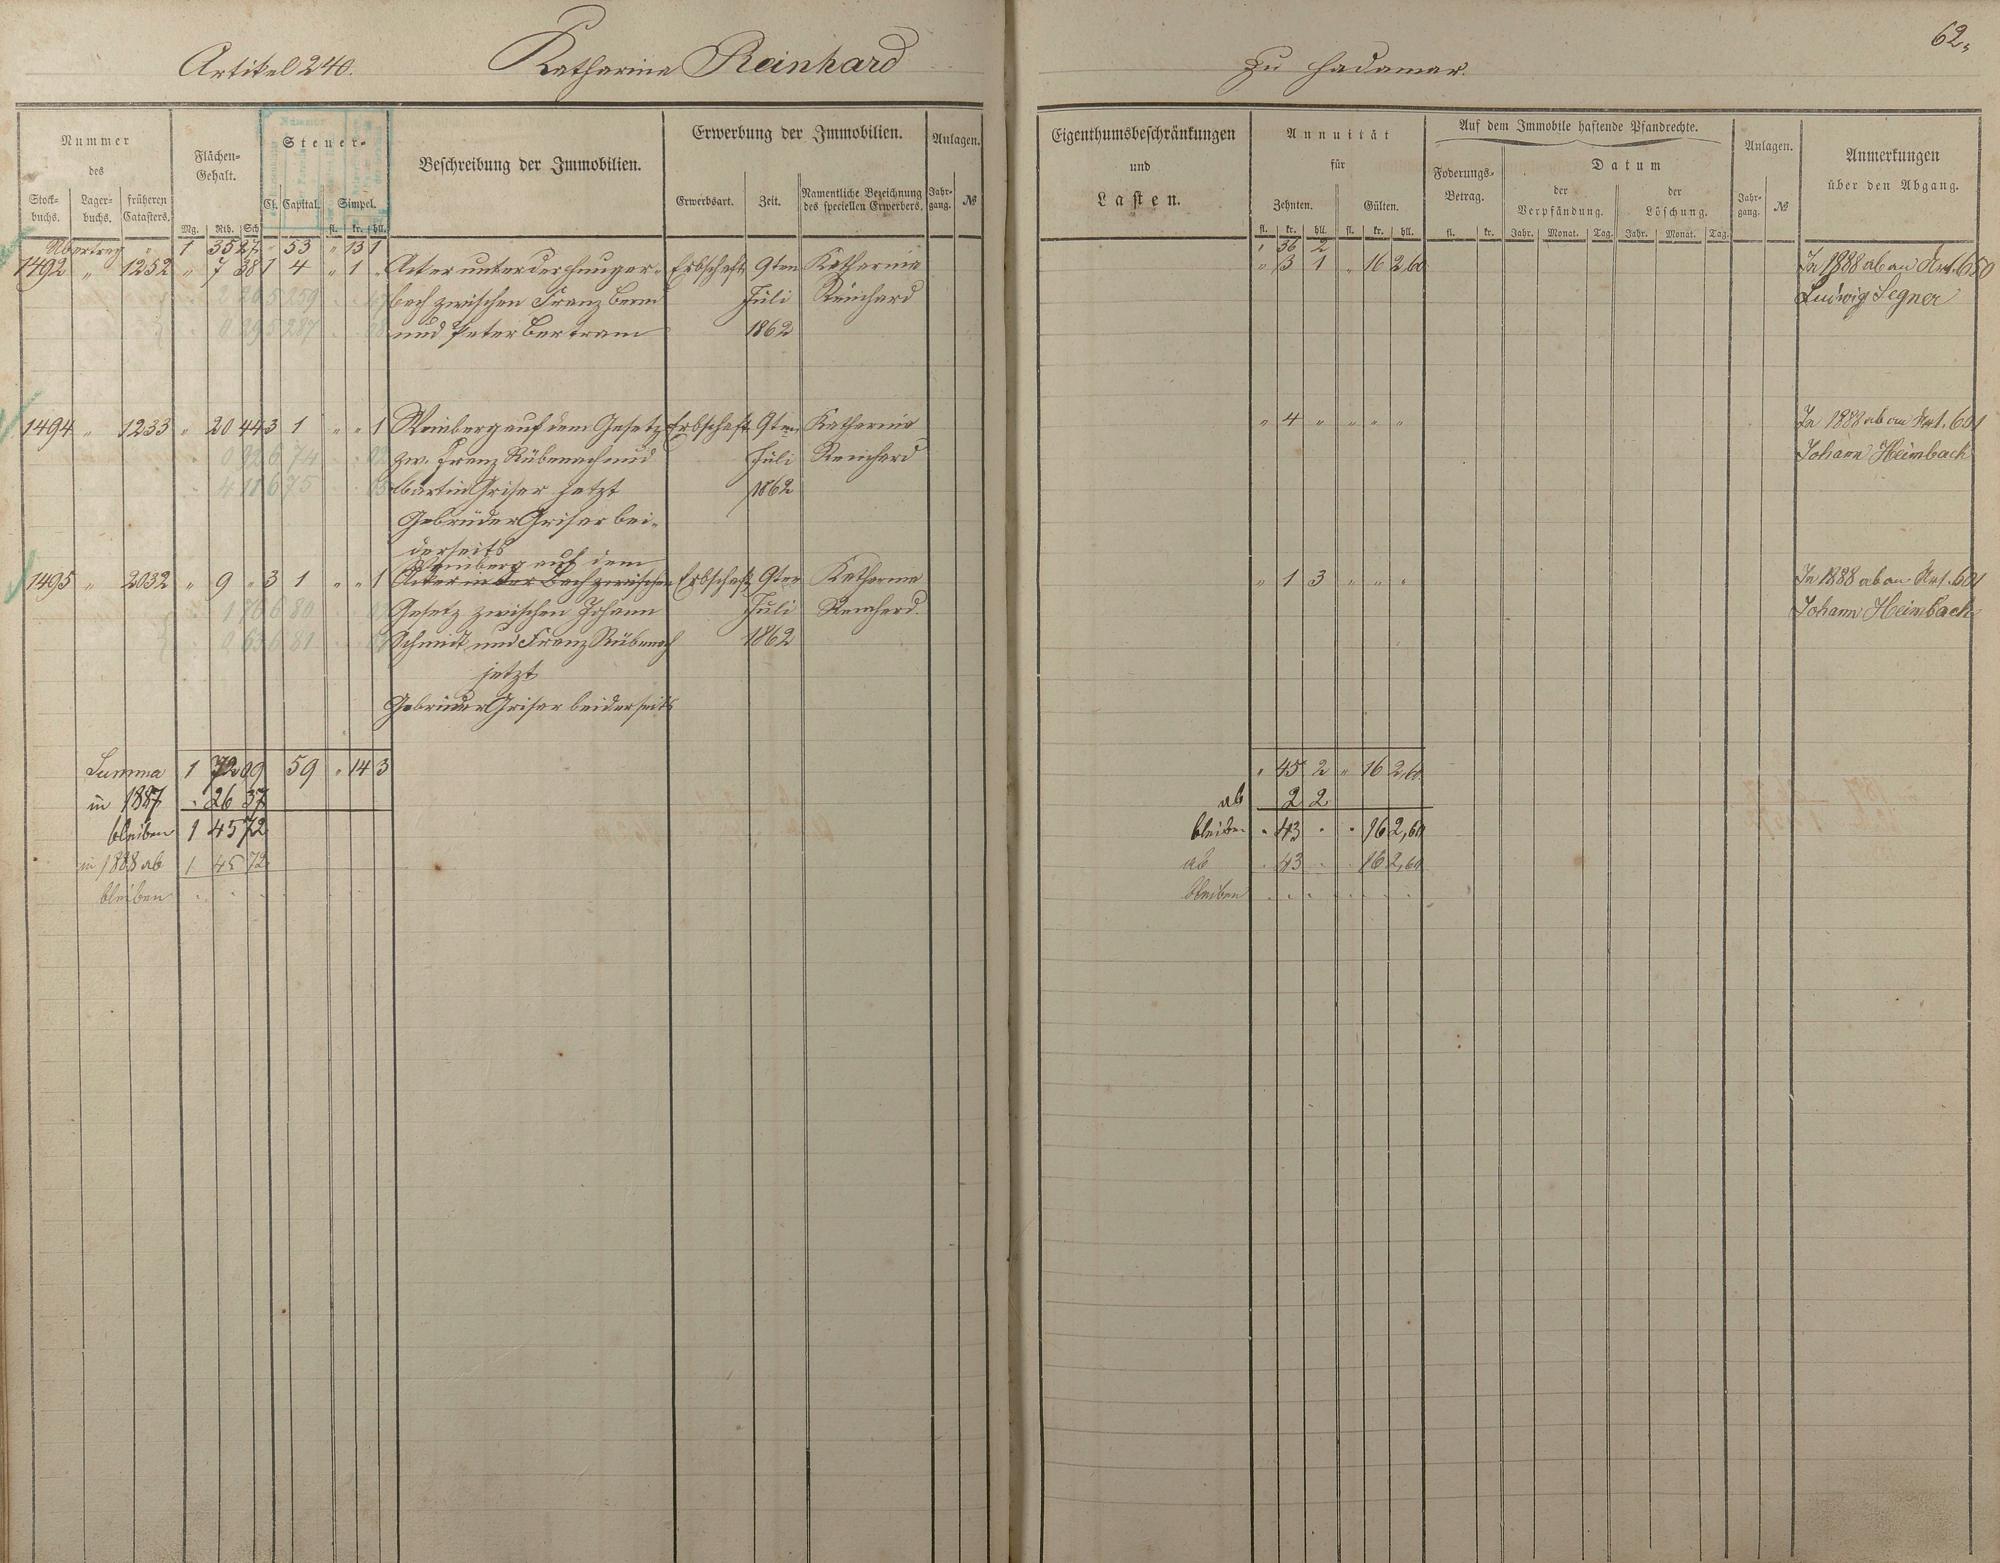 62.
Artikel 240. Katharina Reinhard zu Hadamar.
Nummer des
Stock-buchs. Lager-buchs. früheren Catasters.
Flächen-Gehalt.
Mg. Rth. Sch
Steuer-
Cl. Capital. Simpel.
fl. kr. hll.
Beschreibung der Immobilien.
Erwerbung der Immobilien.
Erwerbsart. Zeit. Namentliche Bezeichnung des speciellen Erwerbers.
Anlagen.
Jahr-gang. №
Eigenthumsbeschränkungen
und
Lasten.
Annuität
für
Zehnten. Gülten.
fl. kr. hll. fl. kr. hll.
Auf dem Immobile haftende Pfandrechte.
Foderungs-Betrag.
fl. kr.
Datum
der Verpfändung. der Löschung.
Jahr. Monat. Tag. Jahr. Monat. Tag.
Anlagen.
Jahr-gang. №
Anmerkungen
über den Abgang.
Übertrag " 1 35 27 " 53 " 13 1 " 36 2
1492 " 1252 " 7 38 1 4 " 1 " Acker unter der Hunger- Erbschaft 9ten Katharina " 3 1 " 16 2,60 In 1888 ab an Art. 650
bach zwischen Franz Juli Reinhard Ludwig Segner
und Peter Bertram 1862
1494 " 1233 " 20 44 3 1 " " 1 Weinberg auf dem Gesetz Erbschaft 9ten Katharina " 4 " " " " In 1888 ab an Art. 601
zw. Franz Rübenach und Juli Reinhard Johann Heimbach
Martin Griser jetzt 1862
Gebrüder Griser bei-
derseits
Weinberg auf dem
1495 " 2032 " 9 " 3 1 " " 1 Acker in der Bach zwischen Erbschaft 9ten Katharina " 1 3 " " " In 1888 ab an Art. 601
Gesetz zwischen Johann Juli Reinhard Johann Heimbach
Schmidt und Franz Rübenach 1862
jetzt
Gebrüder Griser beiderseits
Summa 1 72 09 59 " 14 3 " 45 2 " 16 2,60
in 1887 . 26 37 ab 2 2
bleiben 1 45 72 bleiben . 43 . . 16 2,60
in 1888 ab 1 45 72 ab . 43 . . 16 2,60
bleiben . . . bleiben . . . . . .